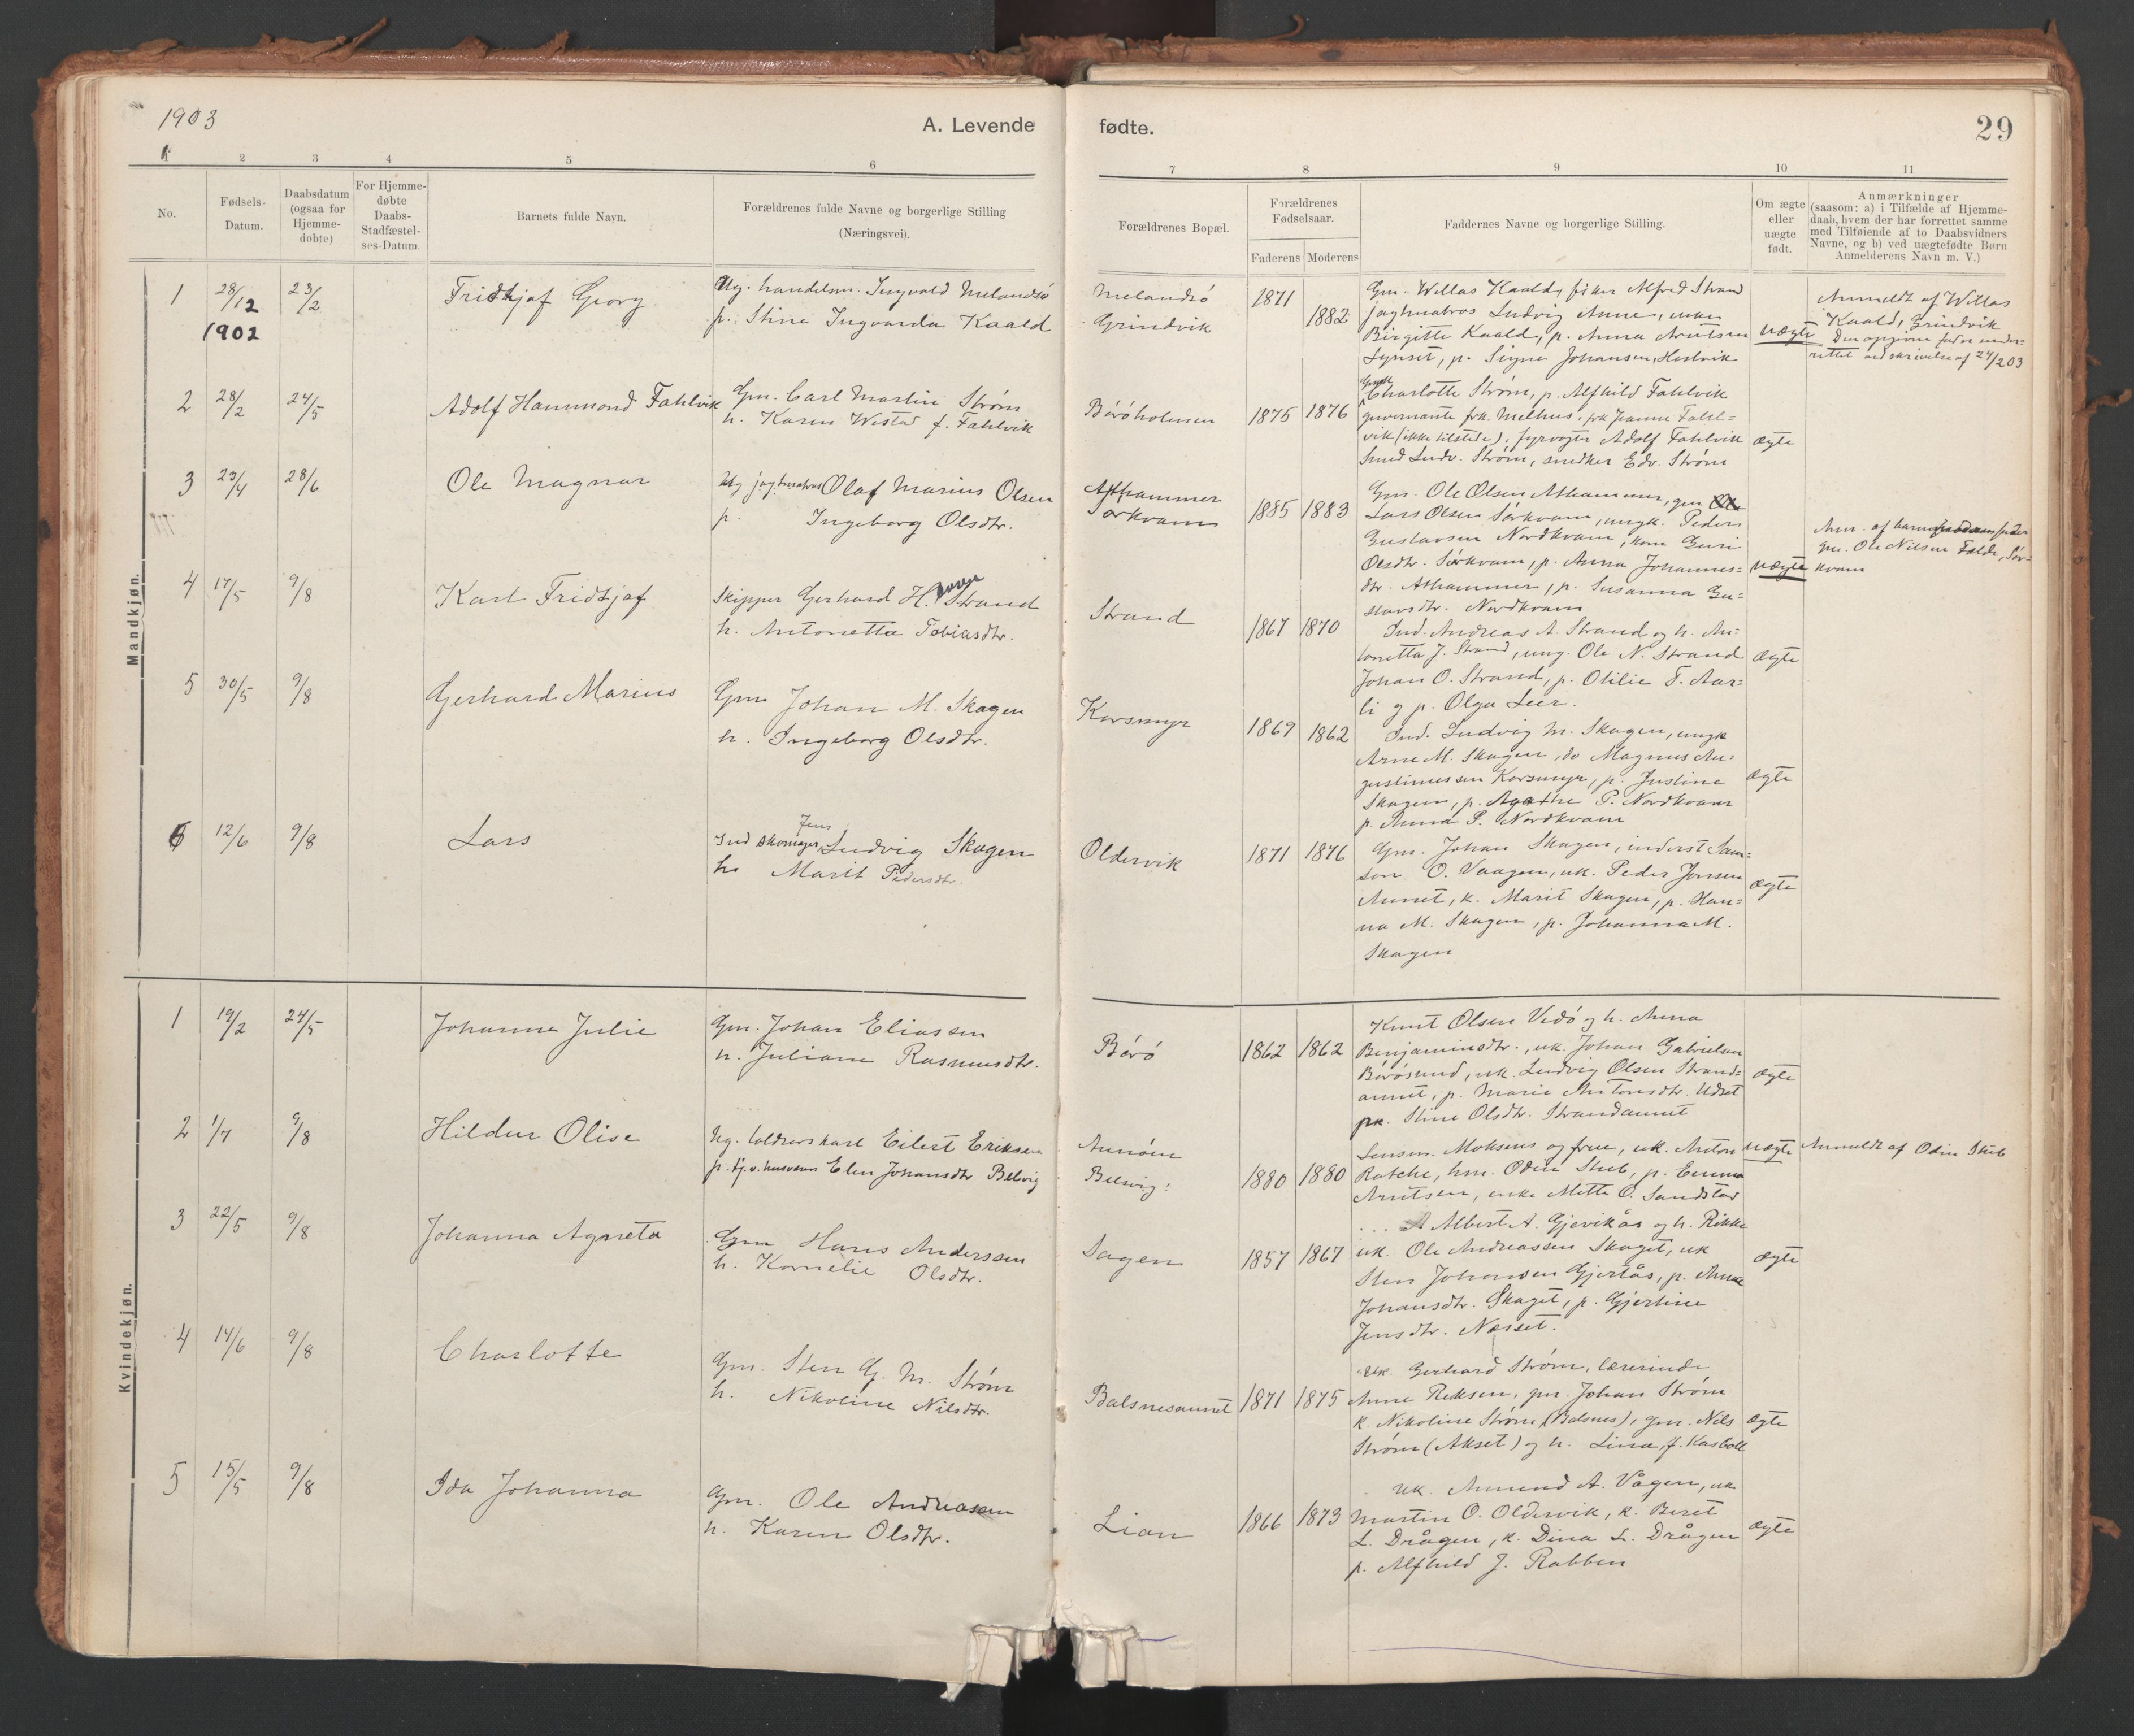 1903
A. Levende fødte.
29
1 2 3 4 5 6 7 8 9 10 11
No.
Fødsels-
Datum.
Daabsdatum
(ogsaa for
Hjemme-
døbte)
For Hjemme-
døbte
Daabs-
Stadfæstel-
ses-Datum.
Barnets fulde Navn.
Forældrenes fulde Navne og borgerlige Stilling
(Næringsvei).
Forældrenes Bopæl.
Forældrenes
Fødselsaar.
Faderens Moderens
Faddernes Navne og borgerlige Stilling.
Om ægte
eller
uægte
født.
Anmærkninger
(saasom: a) i Tilfælde af Hjemme-
daab, hvem der har forrettet samme
med Tilføiende af to Daabsvidners
Navne, og b) ved uægtefødte Børn
Anmelderens Navn m. V.)
Mandkjøn.
1 28/12 1902 23/2 Fridtjof Georg
Ug. handelsm. Ingvald Melandsø
p. Stine Ingvarda Kaald
Melandsø
Grindvik
1871 1882
Gm. Willas Kaald, fisker Alfred Strand
jagtmatros Ludvig Aune, enke
Birgitte Kaald, p. Anna Arntsen
Synset, p. Signe Johansen, Hestvik
uægte
Anmeldt af Willas
Kaald, Grindvik
Den opgivne fader under-
rettet ved skrivelse af 24/2 03
2 28/2 24/5 Adolf Hammond Fahlvik
Gm. Carl Martin Strøm
h. Karen Westad f. Fahlvik
Böröholmen
1875 1876
Charlotte Strøm, p. Alfhild Fahlvik
guvernante frk. Melhus, frk Hanne Fahl-
vik (ikke tilstede), fyrvogter Adolf Fahlvik
Smed Ludv. Strøm, snedker Edv. Strøm
ægte
3 23/4 28/6 Ole Magnar
Ug jagtmatros Olaf Marius Olsen
p. Ingeborg Olsdtr.
Athammer
Sørkvam
1885 1883
Gm. Ole Olsen Athammer, gm
Lars Olsen Sørkvam, ungk. Peder
Gustavsen Nordkvam, kone Guri
Olsdtr. Sørkvam, p. Anna Johannes-
dtr. Athammer, p. Susanna Gu-
stavsdtr. Nordkvam
uægte
Anm. af
Gm. Ole Nilsen Falde, Sør-
kvam
4 17/5 9/8 Karl Fridtjof
Skipper Gerhard H. Strand
h. Antonetta Tobiasdtr.
Strand
1867 1870
Ind. Andreas A. Strand og h. An-
tonetta J. Strand, ung. Ole N. Strand
Johan O. Strand, p. Otilie T. Aar-
li og p. Olga Leer.
ægte
5 30/5 9/8 Gerhard Marius
Gm Johan M. Skagen
h. Ingeborg Olsdtr.
Korsmyr
1869 1862
Ind. Ludvig M. Skagen, ungk
Arne M. Skagen, do Magnus Au-
gustinussen Korsmyr, p. Justine
Skagen, p. Agathe P. Nordkvam
p. Anna P. Nordkvam
ægte
6 12/6 9/8 Lars
Jens
Ind skomager Ludvig Skagen
h. Marit Pedersdtr.
Oldervik
1871 1876
Gm. Johan Skagen, inderst Sam-
son O. Vaagen, uk. Peder Jonsen
Aunet, k. Marit Skagen, p. Han-
na M. Skagen, p. Johanna M.
Skagen
ægte
Kvindekjøn.
1 19/2 24/5 Johanna Julie
Gm. Johan Eliassen
h. Juliane Rasmusdtr.
Börö
1862 1862
Knut Olsen Vedö og h. Anna
Benjaminsdtr., uk. Johan Gabrielsen
Börösund, uk. Ludvig Olsen Strand-
aunet, p. Marie Antonsdtr. Udset
p. Stine Olsdtr. Strandaunet
ægte
2 1/7 9/8 Hildur Olise
Ug. Eilert Eriksen
p. Elen Johansdtr Belvig
Aunöien
Belsvig:
1880 1880
Lensm. Moksnes og frue, uk. Anton
Ratche, hm. Odin Skub, p. Emma
Arntsen, enke Mette O. Sandstad
uægte
Anmeldt af Odin Skub
3 22/5 9/8 Johanna Agneta
Gm Hans Anderssen
h. Kornelie Olsdtr.
Sagen
1857 1867
Albert A. Gjevikås og h. Rikke
uk. Ole Andreassen Skaget, uk
Sten Johansen Gjertås, p. Anna
Johansdtr. Skaget, p. Gjertine
Jensdtr. Næsset.
ægte
4 14/6 9/8 Charlotte
Gm. Sten G. M. Strøm
h. Nikoline Nilsdtr.
Balsnesaunet
1871 1875
uk. Gerhard Strøm, lærerinde
Anne Reksen, gm. Johan Strøm
k. Nikoline Strøm (Balsnes), gm. Nils
Strøm (Akset) og h. Lina, f. Kasboll
ægte
5 15/5 9/8 Ida Johanna
Gm. Ole Andreassen
h. Karen Olsdtr.
Lian
1866 1873
uk. Amund A. Vågen, uk
Martin O. Oldervik, k. Beret
L. Drågen, k. Dina L. Drågen
p. Alfhild J. Rabben
ægte